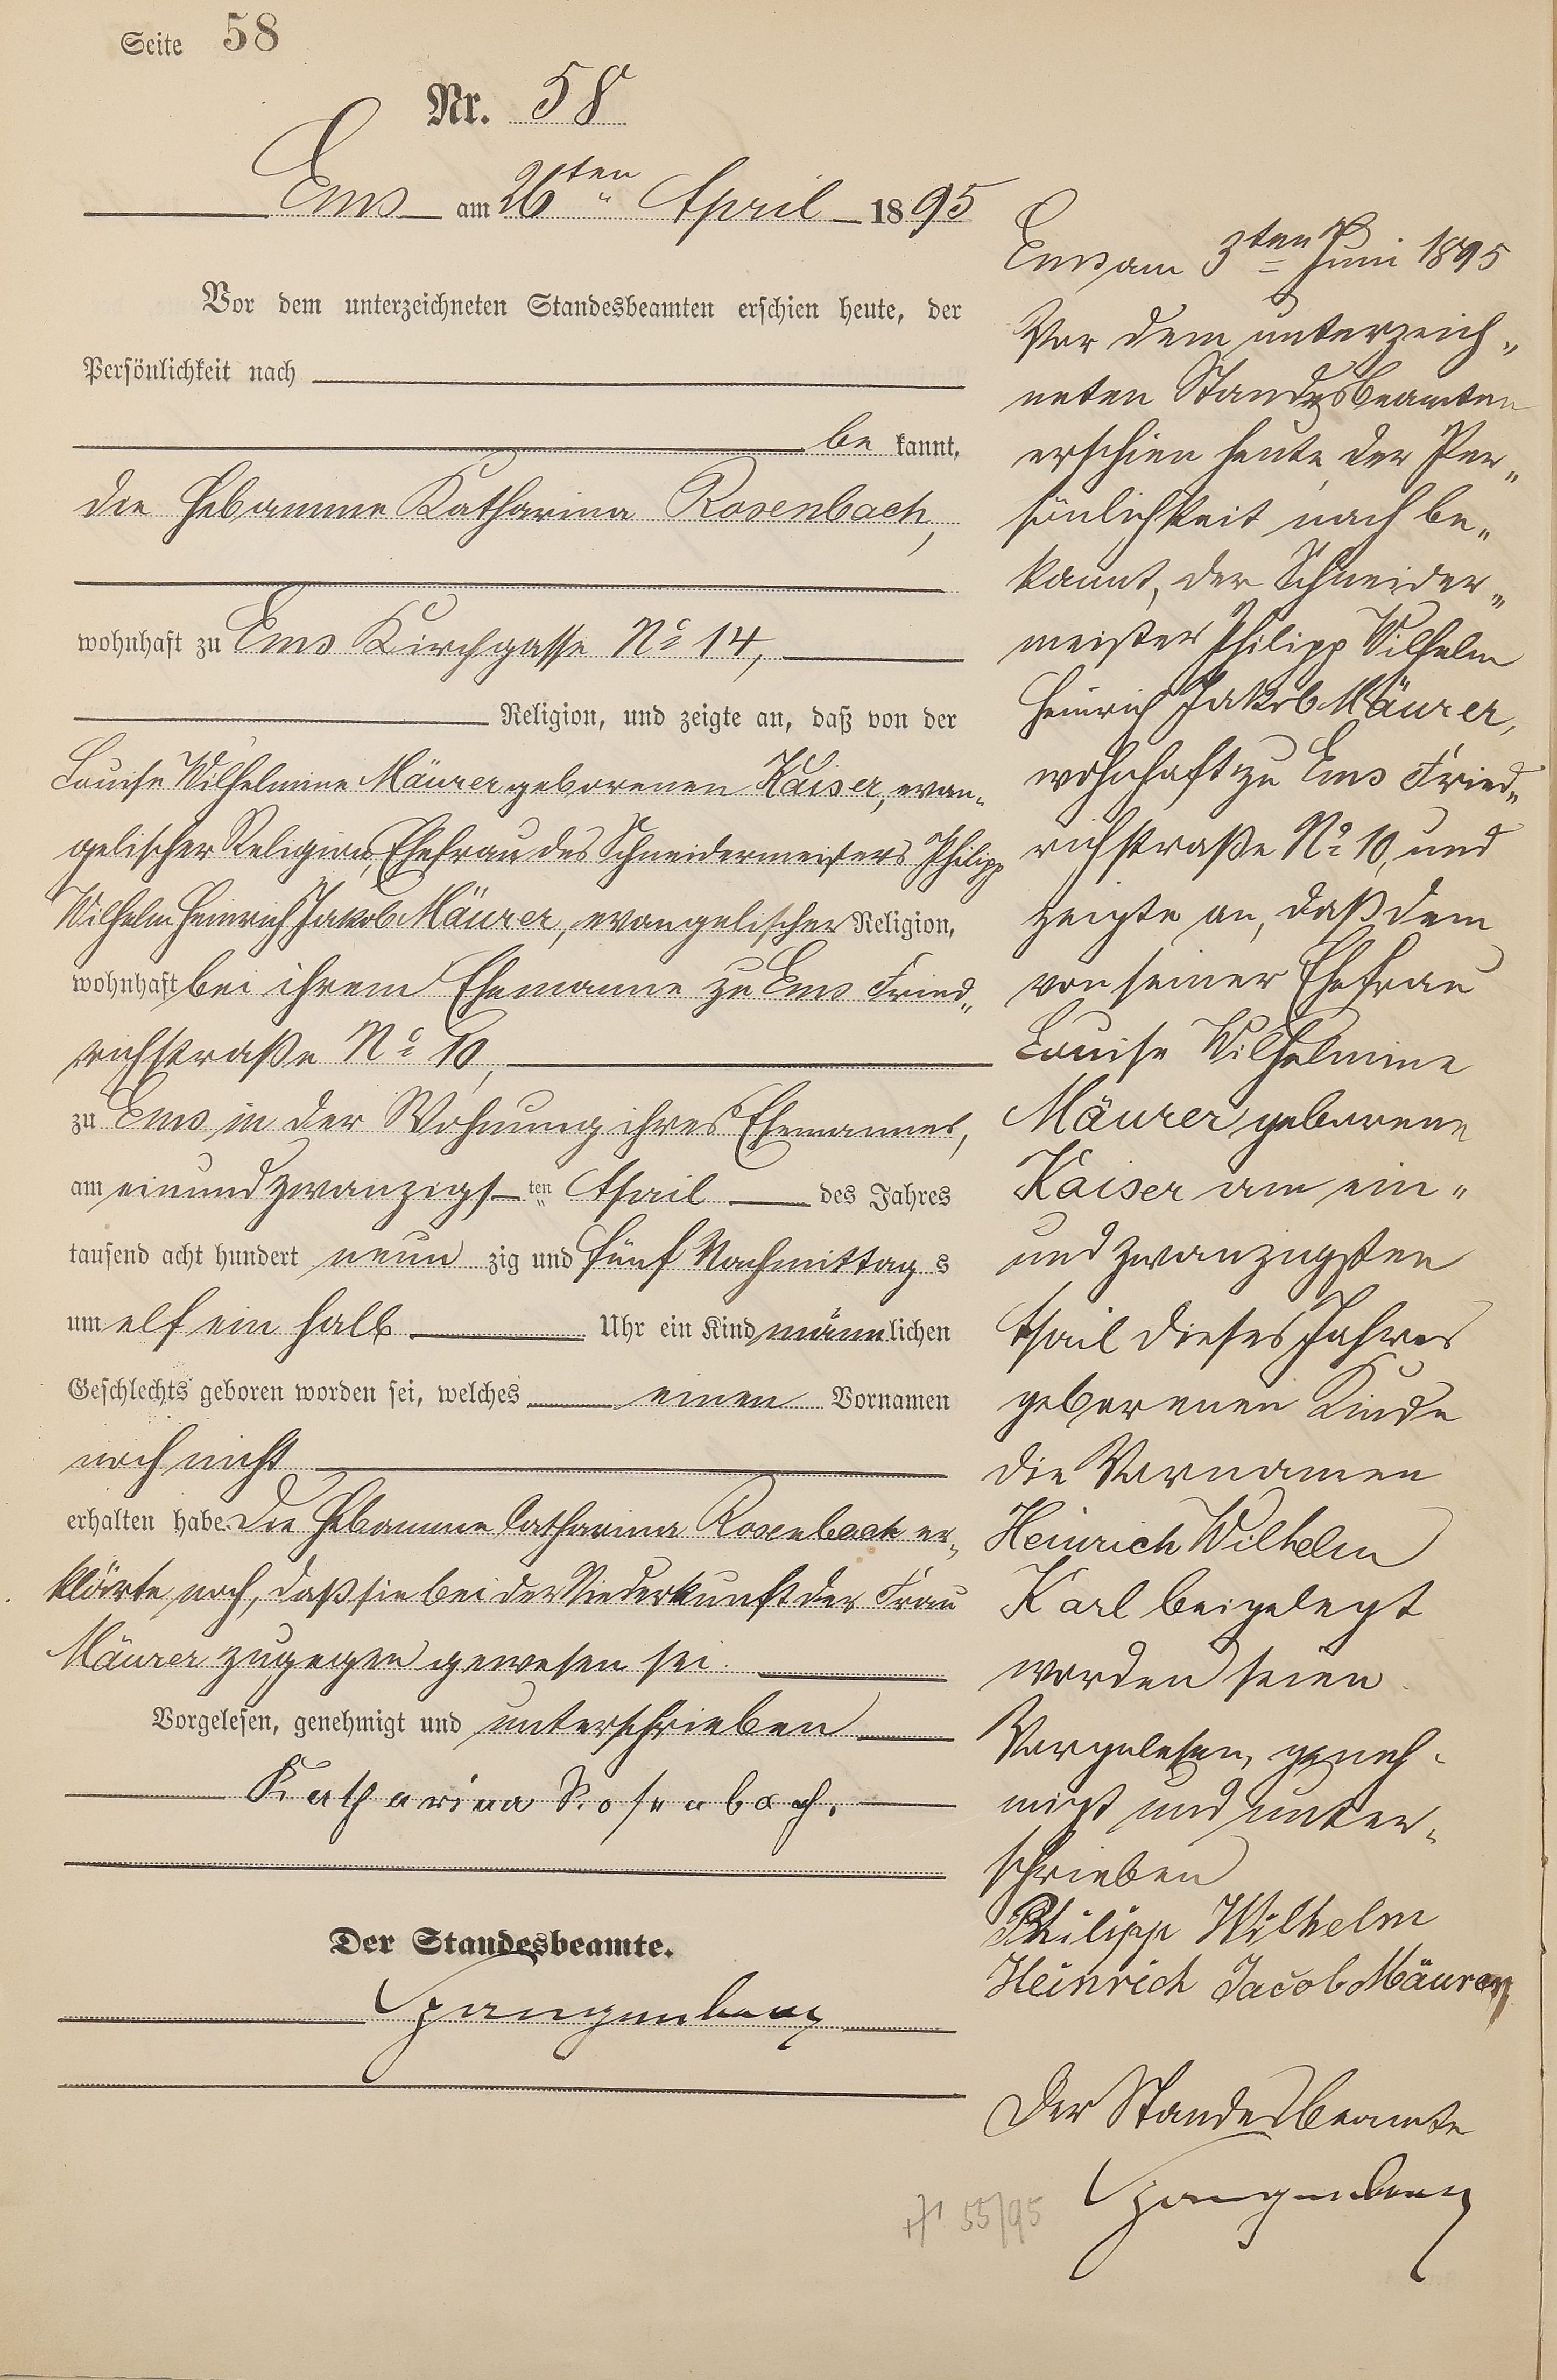 Seite 58
Nr. 58
Ems am 26ten April 1895
Vor dem unterzeichneten Standesbeamten erschien heute, der
Persönlichkeit nach
be kannt,
die Hebamme Katharina Rosenbach,
wohnhaft zu Ems Kirchgasse No 14,
Religion, und zeigte an, daß von der
Louise Wilhelmine Mäurer geborenen Kaiser, evan„
gelischer Religion, Ehefrau des Schneidermeisters Philipp
Wilhelm Heinrich Jakob Mäurer, evangelischer Religion,
wohnhaft bei ihrem Ehemanne zu Ems Fried„
richstraße No 10,
zu Ems in der Wohnung ihres Ehemannes,
am einundzwanzigs ten April des Jahres
tausend acht hundert neun zig und fünf Nachmittag s
um elf ein halb Uhr ein Kind männ lichen
Geschlechts geboren worden sei, welches einen Vornamen
noch nicht
erhalten habe. Die Hebamme Catharina Rosenbach er„
klärte noch, daß sie bei der Niederkunft der Frau
Mäurer zugegen gewesen sei.
Vorgelesen, genehmigt und unterschrieben
Katharina Rosenbach.
Der Standesbeamte.
Spangenberg
Ems am 3ten Juni 1895
Vor dem unterzeich„
neten Standesbeamten
erschien heute, der Per„
sönlichkeit nach be„
kannt, der Schneider„
meister Philipp Wilhelm
Heinrich Jakob Mäurer,
wohnhaft zu Ems Fried„
richstraße No 10, und
zeigte an, daß dem
von seiner Ehefrau
Louise Wilhelmine
Mäurer geborene
Kaiser am ein„
und zwanzigsten
April dieses Jahres
geborenen Kinde
die Vornamen
Heinrich Wilhelm
Karl beigelegt
worden seien.
Vorgelesen, geneh„
migt und unter„
schrieben
Philipp Wilhelm
Heinrich Jacob Mäurer
Der Standesbeamte
Spangenberg
55/95